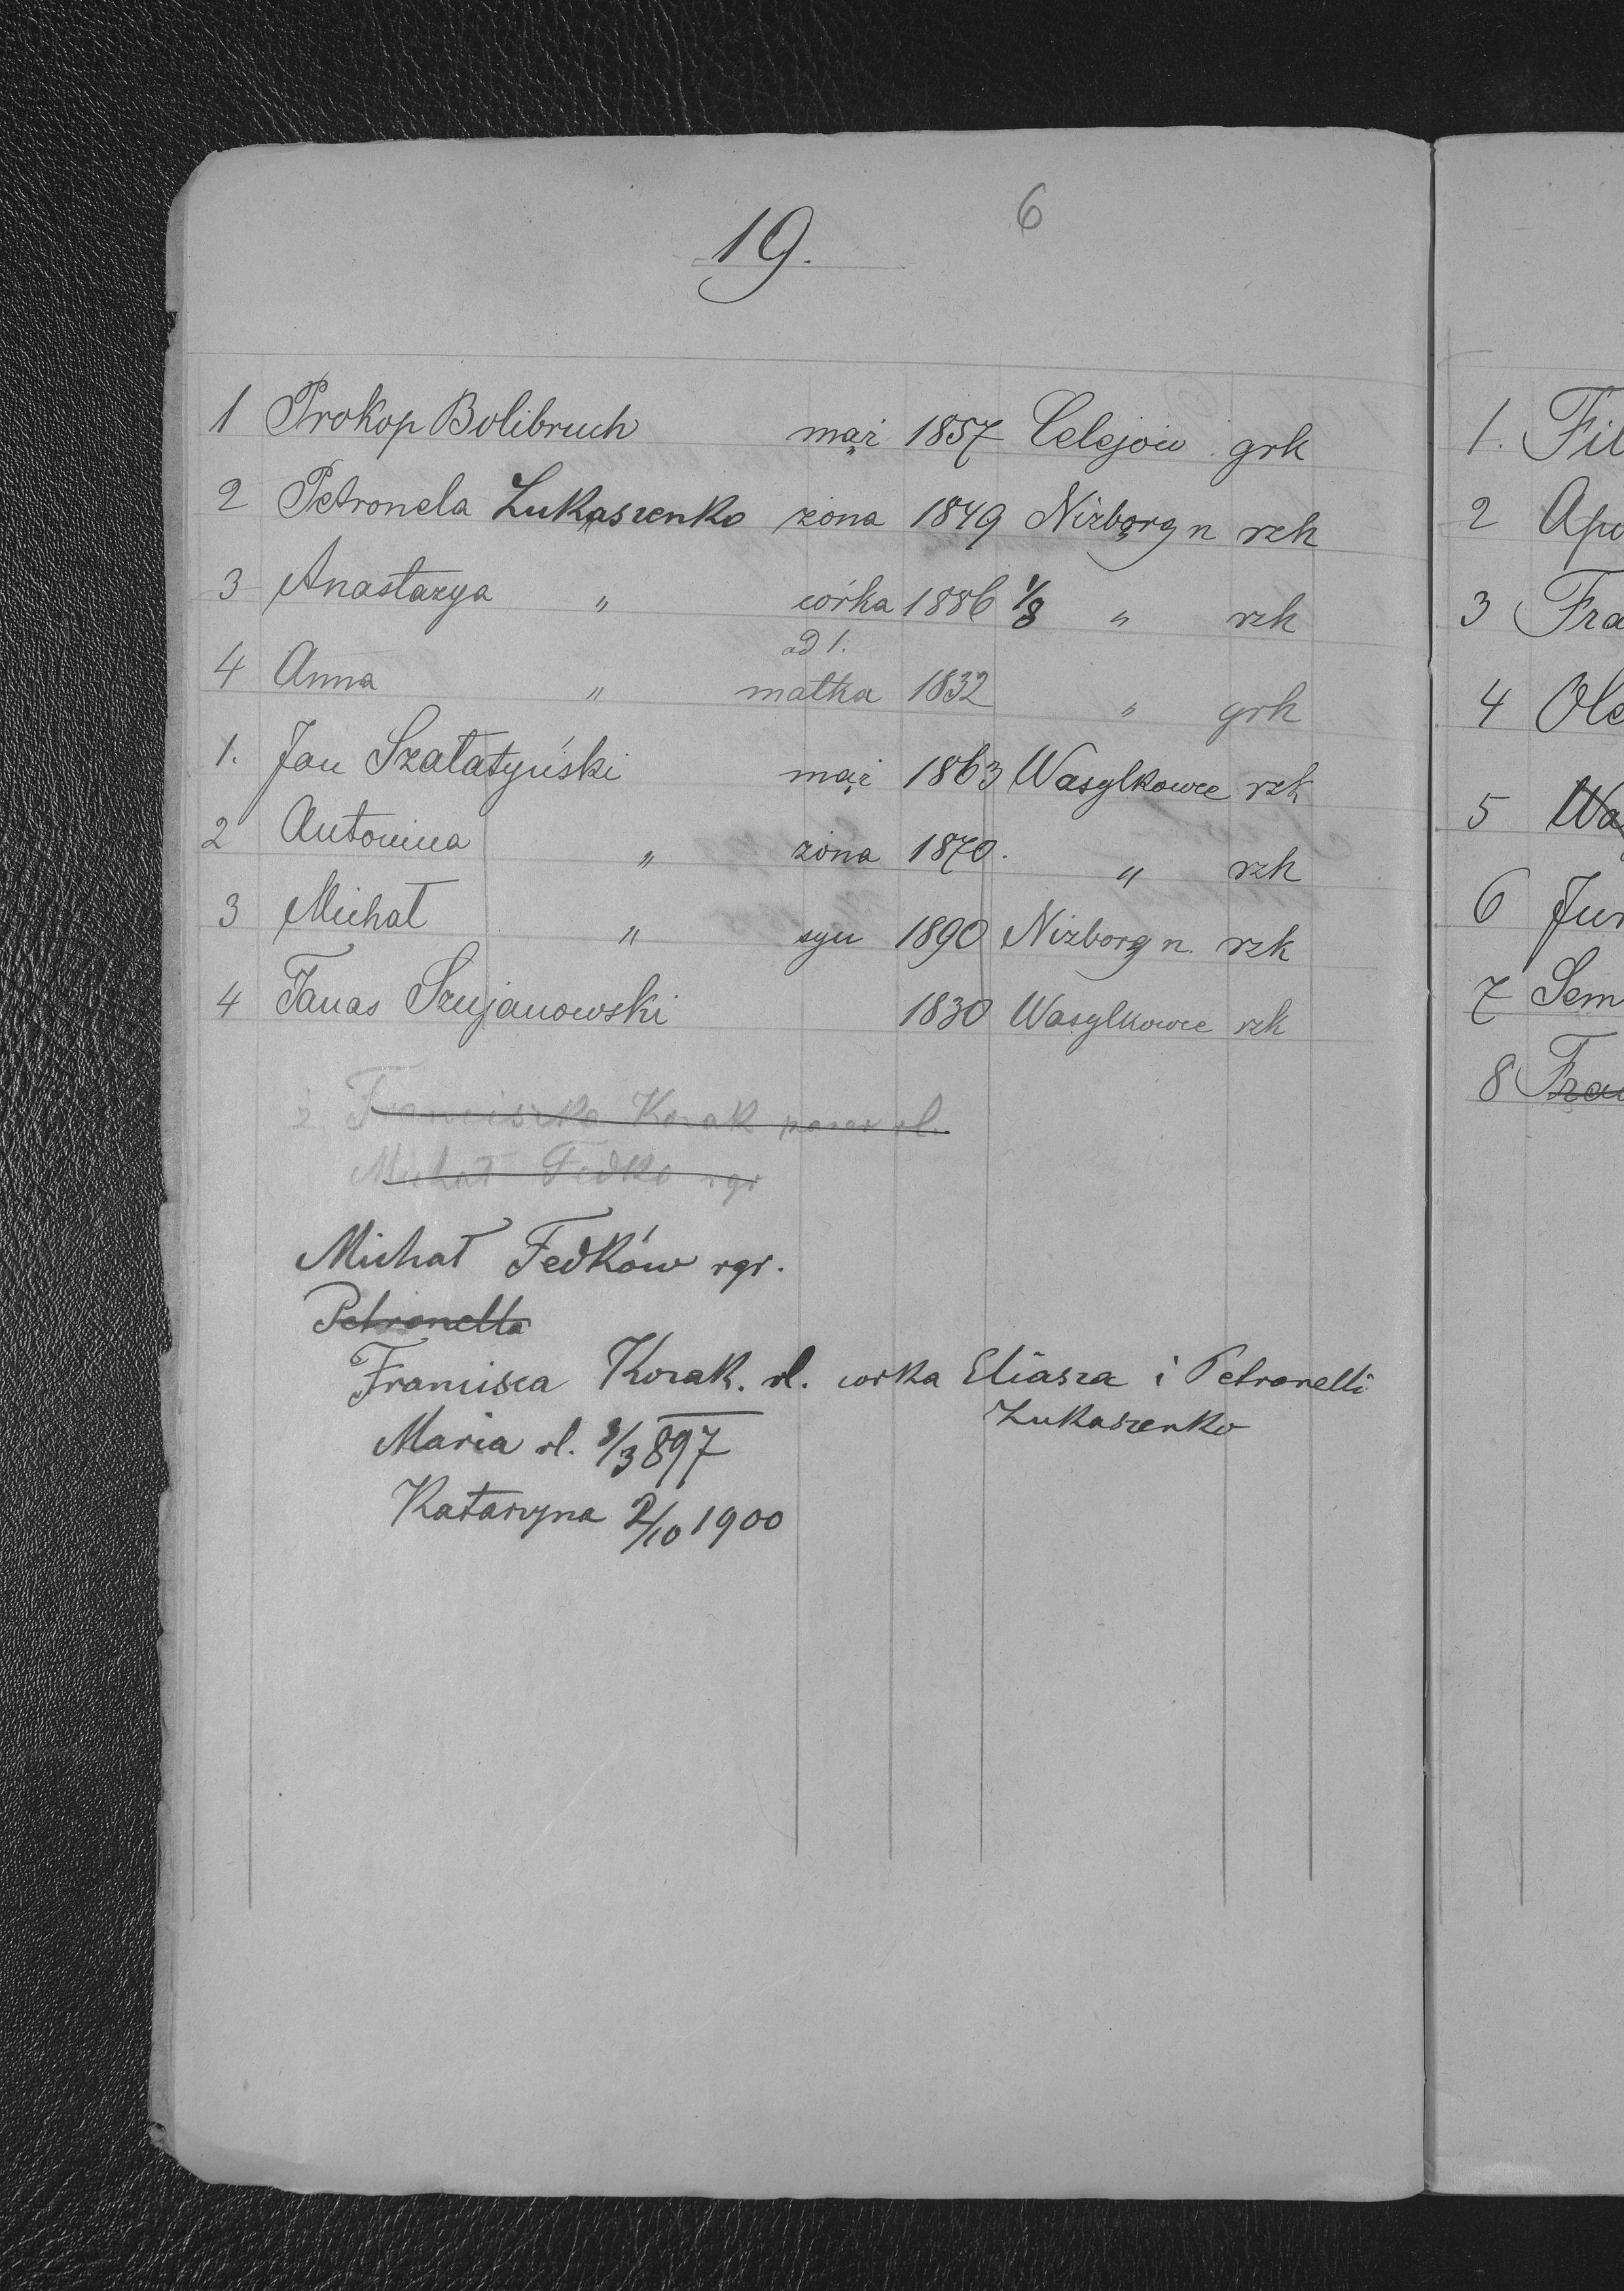 6
19.
1 Prokop Bolibruch mąż 1857 Celejów grk
2 Petronela Łukaszenko żona 1849 Niżborg n rzk
3 Anastazya " córka 1886 1/8 " rzk
ad 1.
4 Anna " matka 1832 " grk
1. Jan Szałatyński mąż 1863 Wasylkowce rzk
2 Antonina " żona 1870. " rzk
3 Michał " syn 1890 Niżborg n. rzk
4 Tanas Szujanowski 1830 Wasylkowce rzk
2. Franciszka Kozak rl.
Michał Fedko rgr
Michał Fedków rgr.
Petronella
Francisca Kozak. rl. corka Eliasza i Petronelli
Łukaszenko
Maria rl. 3/3 897
Katarzyna 2/10 1900
1. Fil
2 Apo
3 Fra
4 Ole
5 Wa
6 Jur
7 Sem
8 Fra